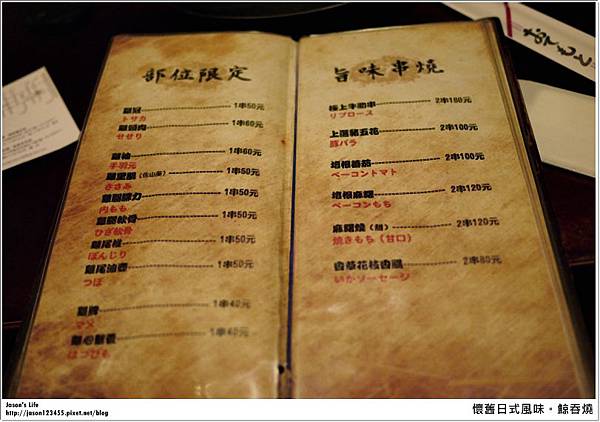 部位限定
雞冠 1串50元
トサカ
雞頸肉 1串60元
せせり
雞袖 1串60元
手羽元
雞里肌 (佐山葵) 1串50元
ささみ
雞腿腱力 1串50元
内もも
雞膝軟骨 1串50元
ひざ軟骨
雞尾椎 1串50元
ぼんじり
雞尾油壺 1串50元
つぼ
雞脾 1串40元
マメ
雞心動脈 1串40元
はつひも
旨味串燒
極上牛肋串 2串180元
リブロース
上選豬五花 2串100元
豚バラ
培根蕃茄 2串100元
ベーコントマト
培根麻糬 2串120元
ベーコンもち
麻糬燒 (甜) 2串120元
焼きもち (甘口)
香草花枝香腸 2串80元
いかソーセージ
おてもと
Jason's Life
http://jason123455.pixnet.net/blog
懷舊日式風味。鯨吞燒